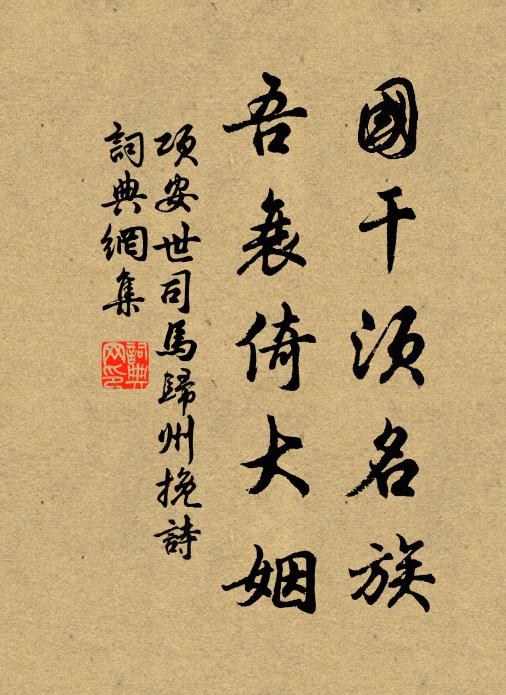 國干須名族
吾衰倚大姻
項安世司馬歸州挽詩
詞典網集
詞典网印